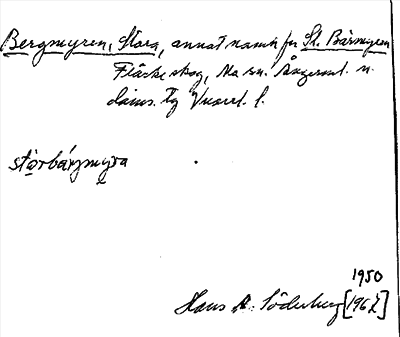 Bergmyren, Stora, annat namn för St. Bärmyren
Fläcke skog, Na sn. Ångerml. n.
doms.
störbárgmyra
1950
Hans A. Söderberg [1962]